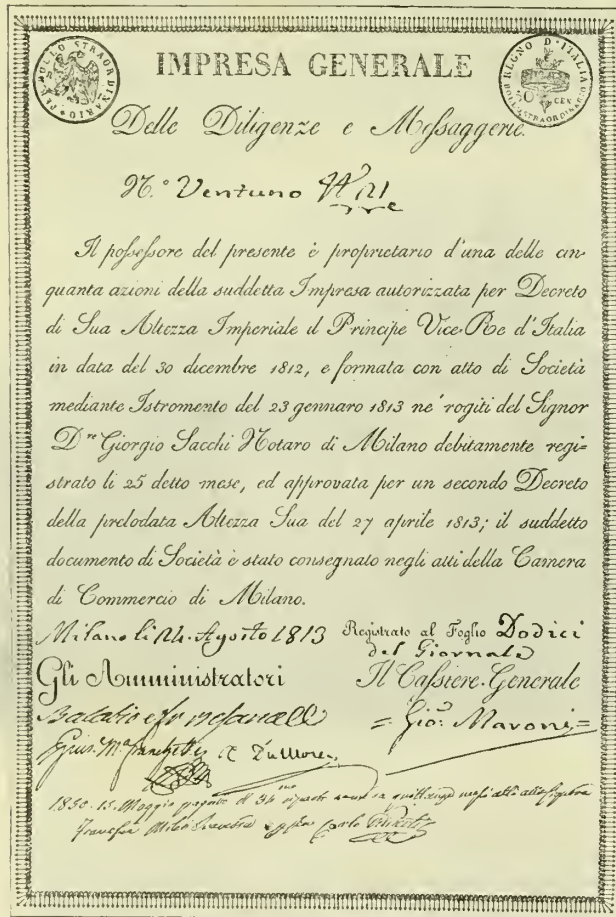 PEL BOLLO STRAORDINARIO
REGNO D'ITALIA
50 CEN
BOLL STRAORDINARIO
IMPRESA GENERALE
Delle Diligenze e Messaggerie.
N.° Ventuno N.° 21
Il possessore del presente è proprietario d'una delle cin-
quanta azioni della suddetta Impresa autorizzata per Decreto
di Sua Altezza Imperiale il Principe Vice-Re d'Italia
in data del 30 dicembre 1812, e formata con atto di Società
mediante Istromento del 23 gennaro 1813 ne' rogiti del Signor
D.re Giorgio Sacchi Notaro di Milano debitamente regi=
strato li 25 detto mese, ed approvata per un secondo Decreto
della prelodata Altezza Sua del 27 aprile 1813; il suddetto
documento di Società è stato consegnato negli atti della Camera
di Commercio di Milano.
Milano li 24. Agosto 1813 Registrato al Foglio Dodici
del Giornale
Gli Amministratori Il Cassiere Generale
= Gio: Maroni =
1830. 15. Maggio pagato il